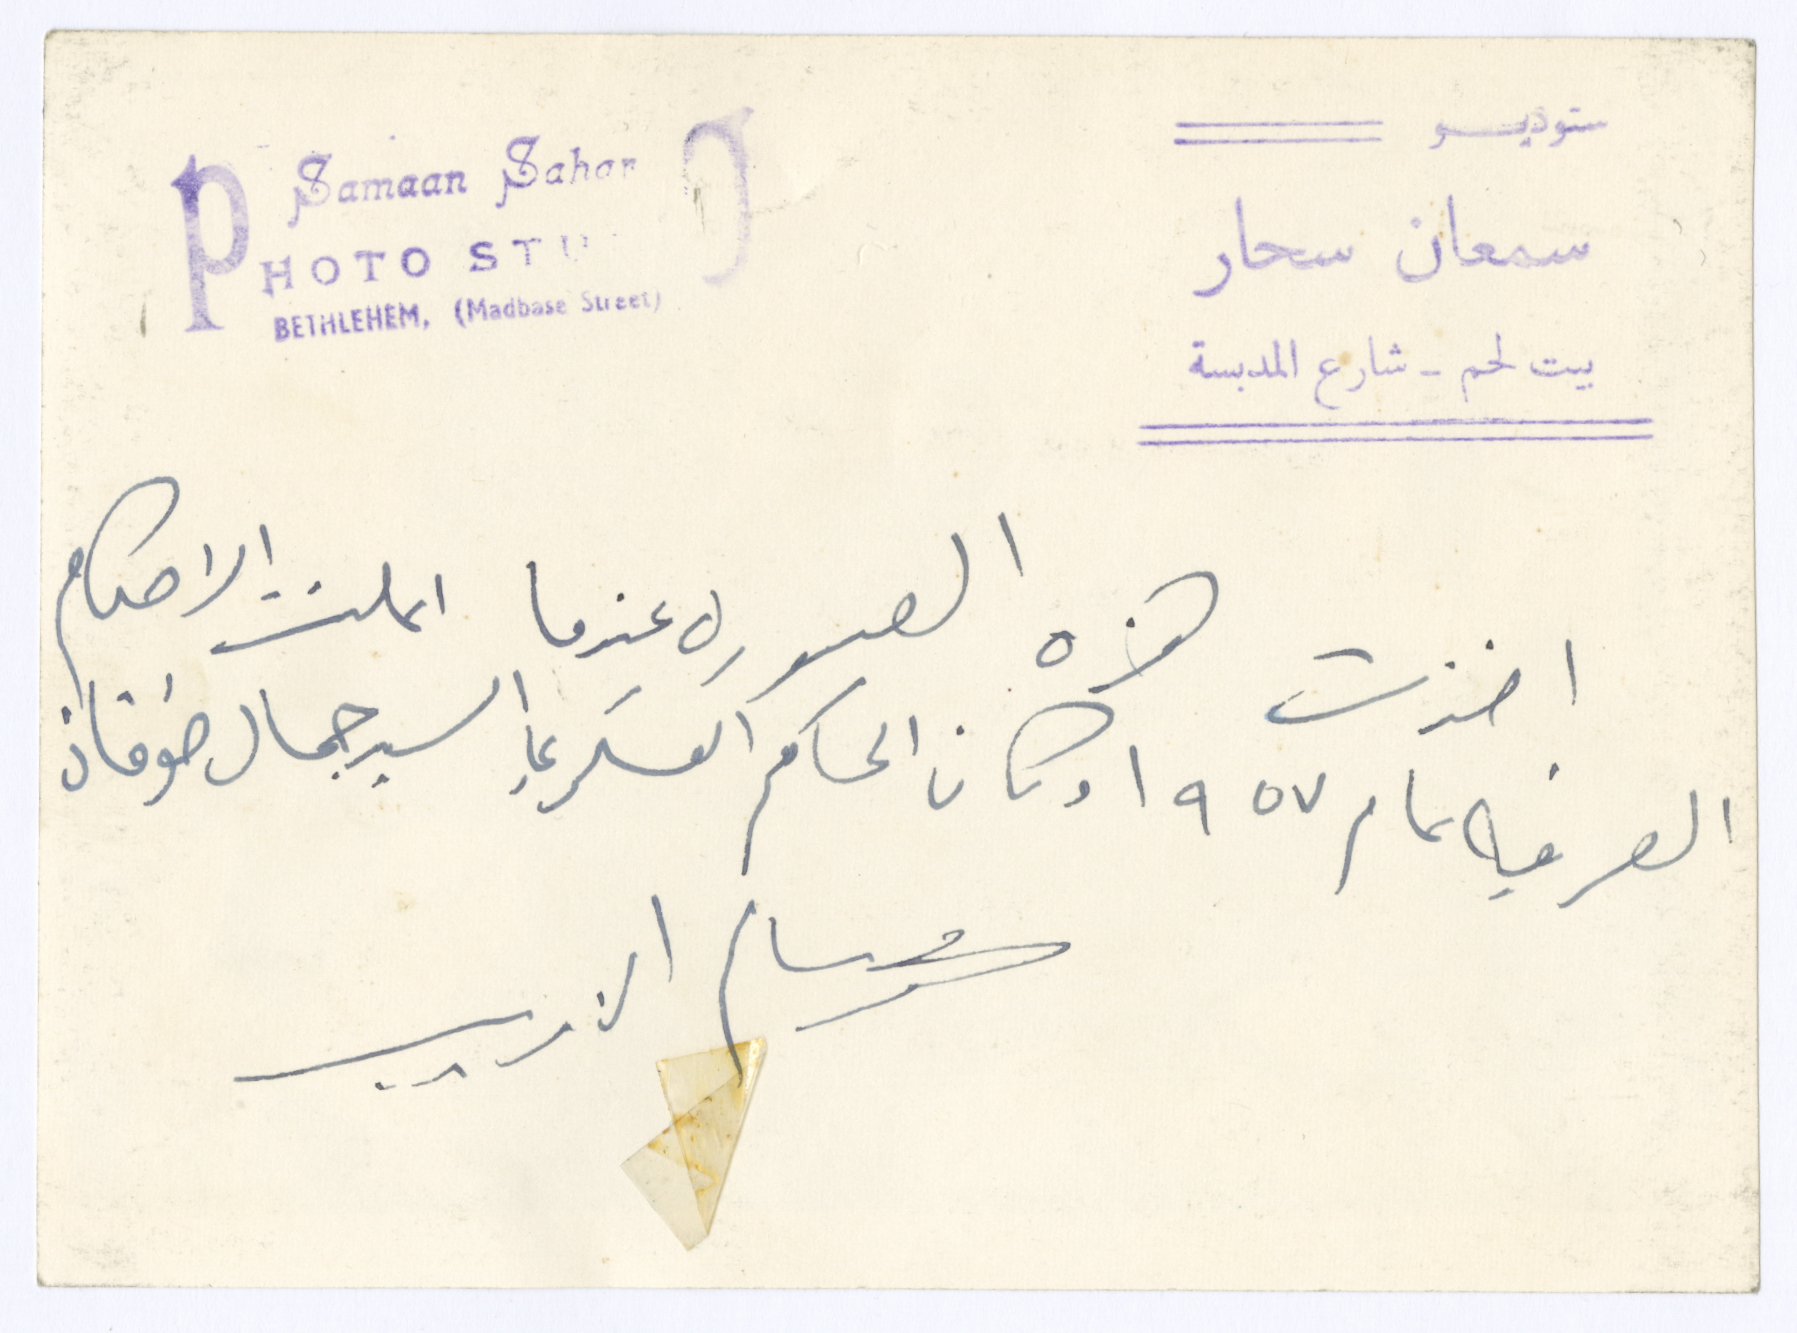 Samaan Sahar
PHOTO STU
BETHLEHEM, (Madbase Street)
ستوديو
سمعان سحار
بيت لحم - شارع المدبسة
اخذت هذه الصوره عندما اعلنت الاحكام
العرفيه عام ١٩٥٧ وكان الحاكم العسكري السيد جمال طوقان